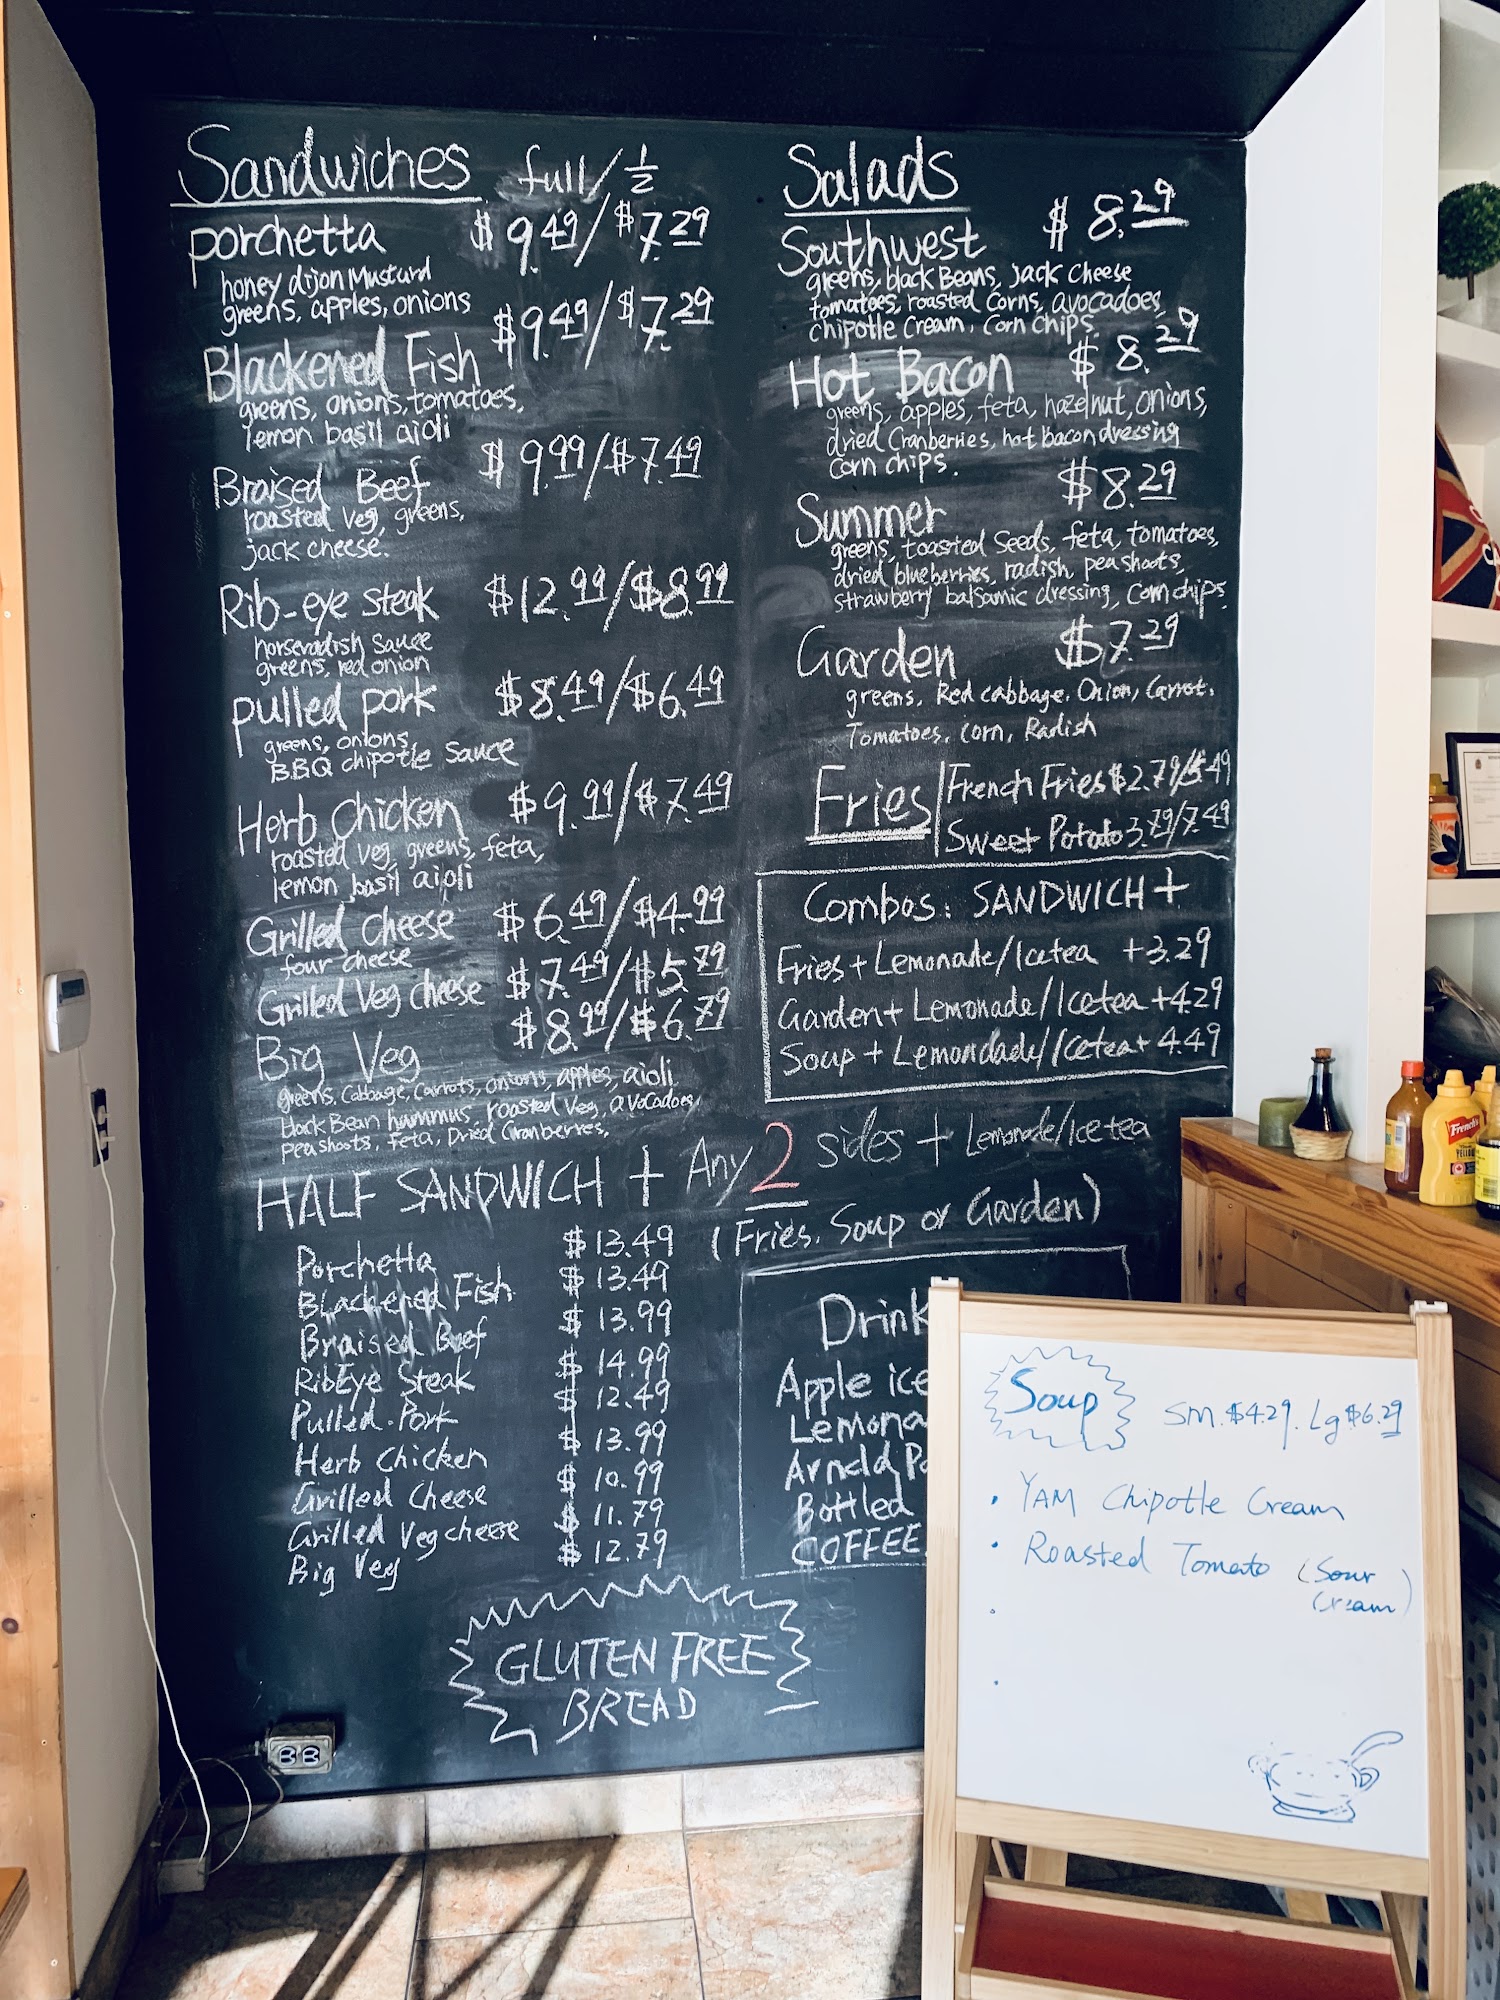 Sandwiches full/½
porchetta $9.49/$7.29
honey dijon Mustard
greens, apples, onions
Blackened Fish $9.49/$7.29
greens, onions, tomatoes,
lemon basil aioli
Braised Beef $9.99/$7.49
roasted veg, greens,
jack cheese.
Rib-eye steak $12.99/$8.99
horseradish sauce
greens, red onion
pulled pork $8.49/$6.49
greens, onions,
BBQ chipotle sauce
Herb chicken $9.99/$7.49
roasted veg, greens, feta,
lemon basil aioli
Grilled cheese $6.49/$4.99
four cheese
Grilled Veg cheese $7.49/$5.79
Big Veg $8.99/$6.79
greens, cabbage, carrots, onions, apples, aioli
black Bean hummus, roasted veg, avocadoes,
peashoots, feta, Dried Cranberries,
Salads
Southwest $8.29
greens, black Beans, Jack Cheese
tomatoes, roasted Corns, avocadoes,
chipotle cream, corn chips.
Hot Bacon $8.29
greens, apples, feta, hazelnut, onions,
dried Cranberries, hot bacon dressing
corn chips.
Summer $8.29
greens, toasted seeds, feta, tomatoes,
dried blueberries, radish, peashoots,
strawberry balsamic dressing, corn chips.
Garden $7.29
greens, Red cabbage, Onion, Carrot,
Tomatoes, corn, Radish
Fries French Fries $2.79/5.49
Sweet Potato 3.79/7.49
Combos: SANDWICH +
Fries + Lemonade/Icetea +3.29
Garden + Lemonade/Icetea +4.29
Soup + Lemondade/Icetea + 4.49
HALF SANDWICH + Any 2 sides + Lemonade/Icetea
(Fries, Soup or Garden)
Porchetta $13.49
Blackened Fish $13.49
Braised Beef $13.99
RibEye Steak $14.99
Pulled Pork $12.49
Herb Chicken $13.99
Grilled Cheese $10.99
Grilled Veg cheese $11.79
Big Veg $12.79
Drink
Apple ice
Lemona
Arnold Pa
Bottled
COFFEE
GLUTEN FREE
BREAD
Soup SM. $4.29. Lg $6.29
• YAM Chipotle Cream
• Roasted Tomato (Sour
Cream)
French's